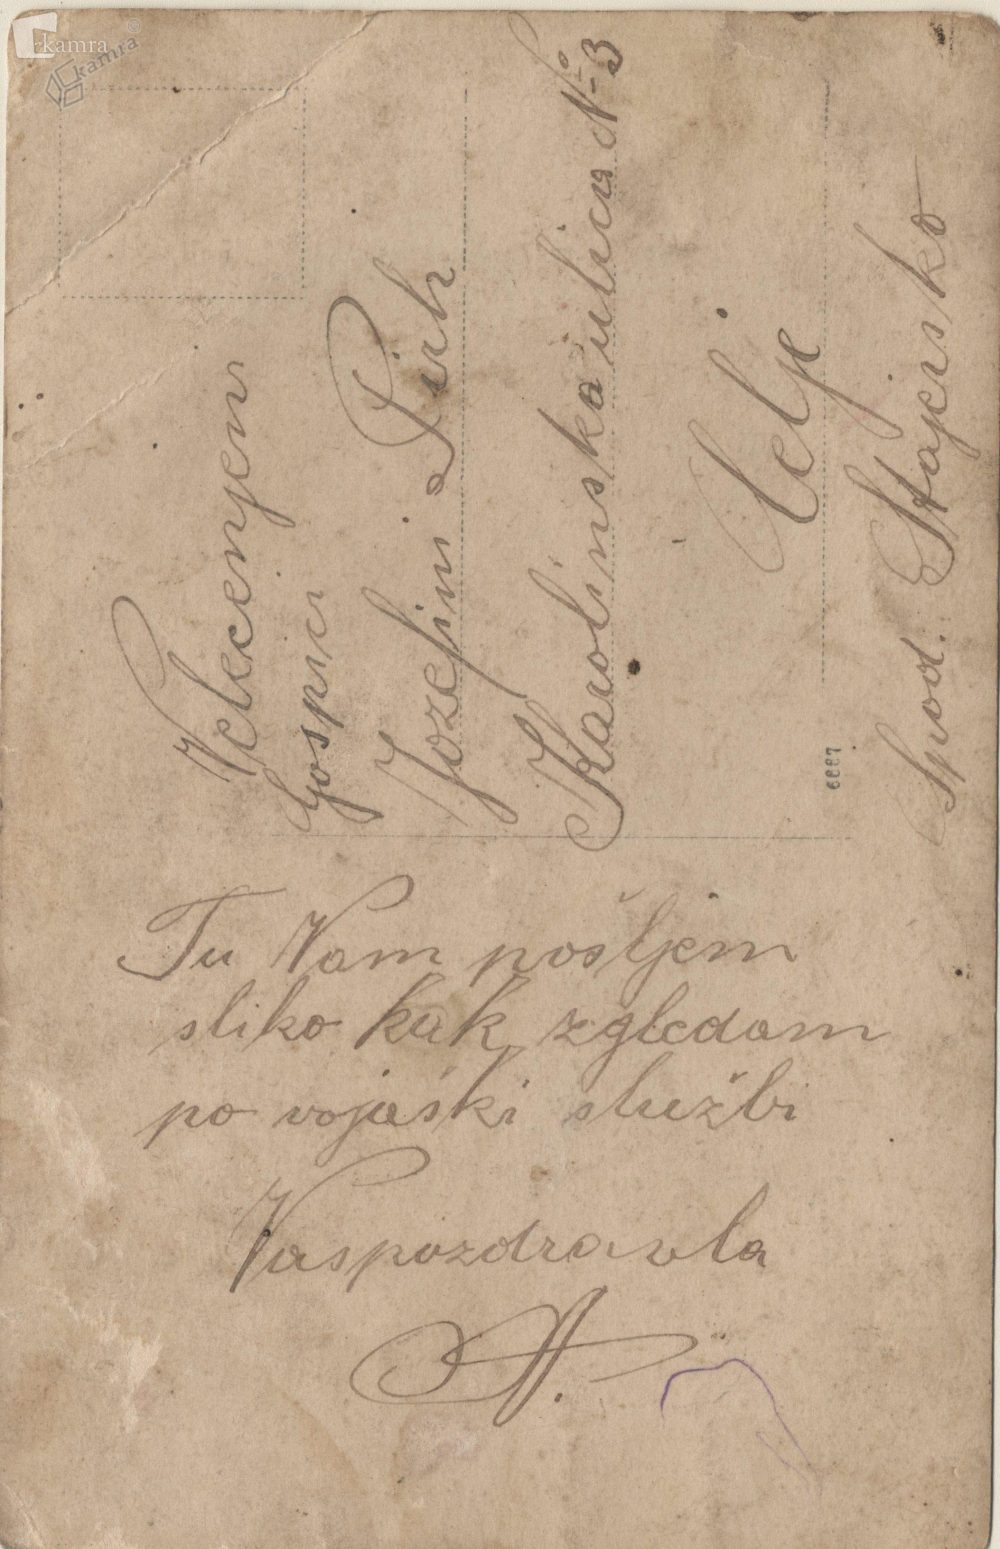 kamra
kamra
Velecenjeni
Gospici
Jozefini Pirh
Karolinska ulica № 3
Celje
Spod. Stajersko
6667
Tu Vam pošljem
sliko kak zgledam
po vojaški službi
Vas pozdravla
A.